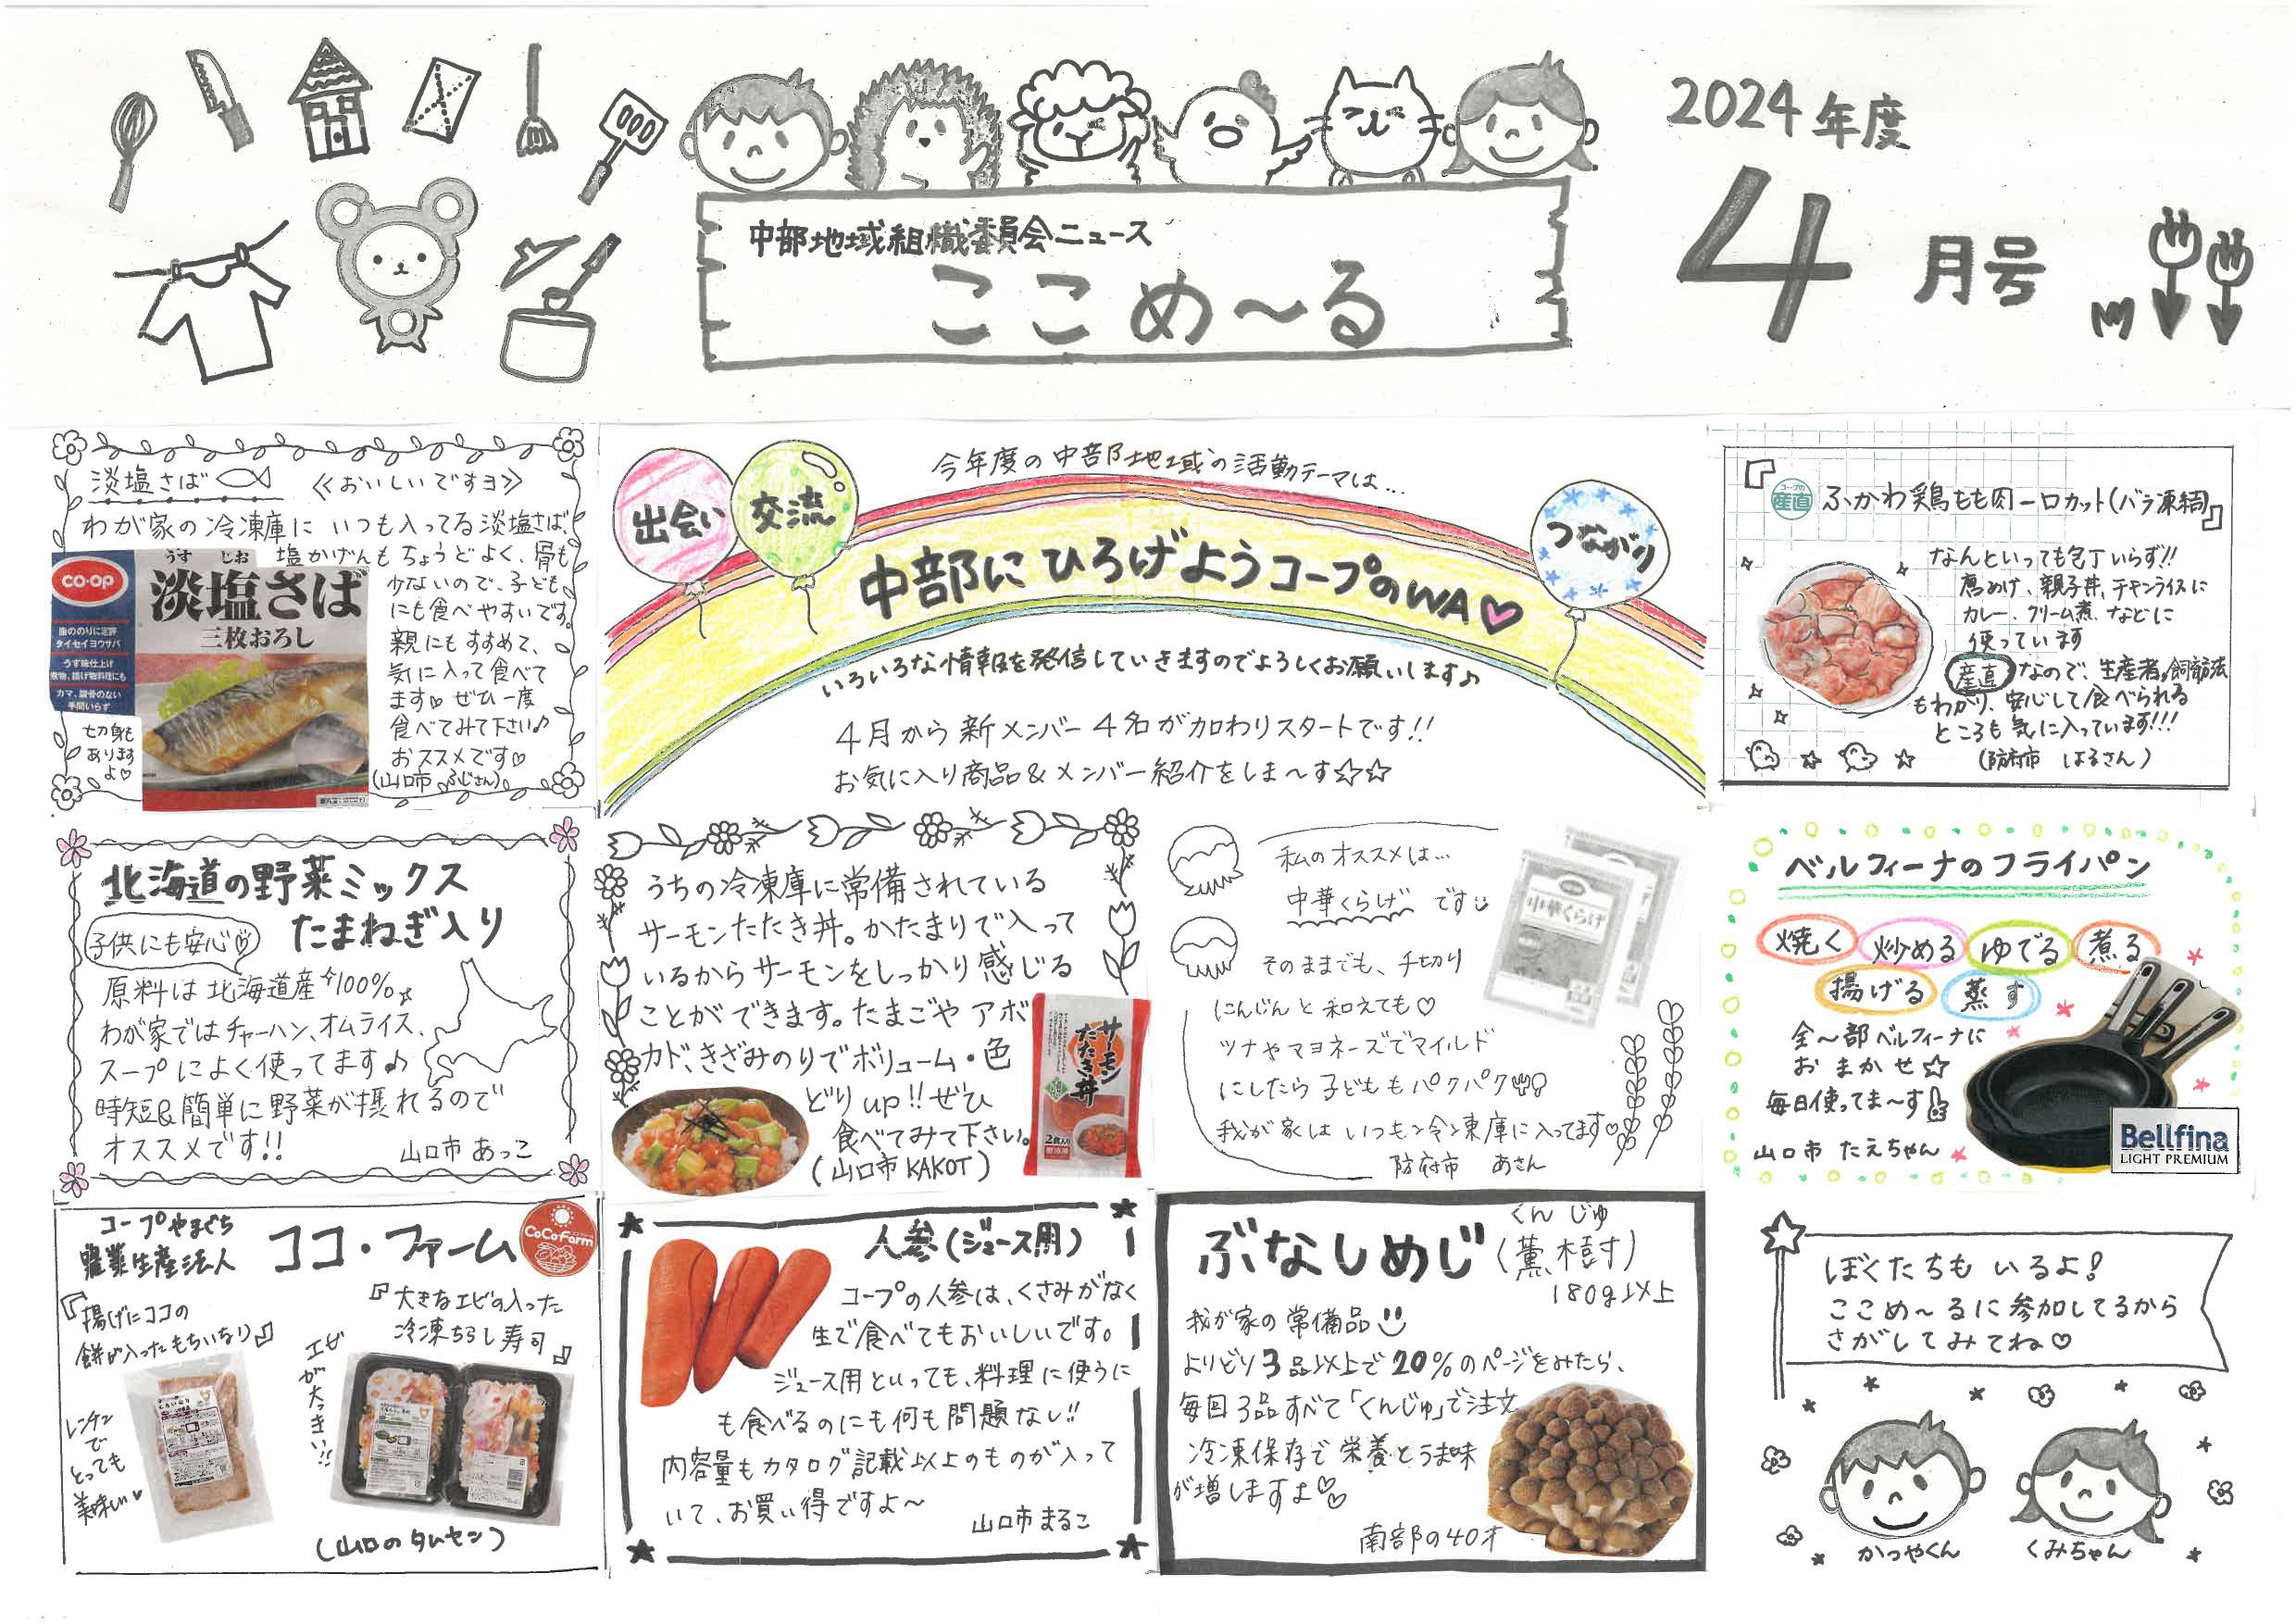 中部地域組織委員会ニュース
ここめ～る
2024年度
4月号
淡塩さば
≪おいしいですヨ≫
わが家の冷凍庫に いつも入ってる淡塩さば。
塩かげんもちょうどよく、骨も
少ないので、子ども
にも食べやすいです。
親にもすすめて、
気に入って食べて
ます♡ ぜひ一度
食べてみて下さい♪
おススメです♡
(山口市 ふじさん)
co・op
うす じお
淡塩さば
三枚おろし
脂ののりに定評
タイセイヨウサバ
うす味仕上げ
煮物、揚げ物料理にも
カマ、腹骨のない
手間いらず
切身も
あります
よ♡
出会い
交流
つながり
今年度の中部地域の活動テーマは…
中部にひろげようコープのWA♡
いろいろな情報を発信していきますのでよろしくお願いします♪
4月から新メンバー4名が加わりスタートです!!
お気に入り商品&メンバー紹介をしま～す☆☆
『
コープの
産直
ふかわ鶏もも肉一口カット(バラ凍結)』
なんといっても包丁いらず!!
唐あげ、親子丼、チキンライスに
カレー、クリーム煮、などに
使っています
産直なので、生産者、飼育方法
もわかり、安心して食べられる
ところも気に入っています!!!
(防府市 はるさん)
北海道の野菜ミックス
たまねぎ入り
子供にも安心♡
原料は北海道産100%☆
わが家ではチャーハン、オムライス、
スープによく使ってます♪
時短&簡単に野菜が摂れるので
オススメです!!
山口市 あっこ
うちの冷凍庫に常備されている
サーモンたたき丼。かたまりで入って
いるからサーモンをしっかり感じる
ことができます。たまごやアボ
カド、きざみのりでボリューム・色
どりup!!ぜひ
食べてみて下さい。
(山口市KAKOT)
サーモン
たたき丼
2食入り
私のオススメは…
中華くらげ です
中華くらげ
そのままでも、千切り
にんじんと和えても♡
ツナやマヨネーズでマイルド
にしたら子どももパクパク
我が家はいつも冷凍庫に入ってます♡
防府市 あさん
ベルフィーナのフライパン
焼く 炒める ゆでる 煮る
揚げる 蒸す
全～部ベルフィーナに
おまかせ☆
毎日使ってま～す
山口市 たえちゃん
Bellfina
LIGHT PREMIUM
コープやまぐち
農業生産法人
ココ・ファーム
CoCoFarm
『揚げにココの
餅が入ったもちいなり』
『大きなエビの入った
冷凍ちらし寿司』
エビが大っきい!!
レンチン
で
とっても
美味しい♡
(山口のタムセン)
人参(ジュース用)
コープの人参は、くさみがなく
生で食べてもおいしいです。
ジュース用といっても、料理に使うに
も食べるのにも何も問題なし!!
内容量もカタログ記載以上のものが入って
いて、お買い得ですよ～
山口市 まるこ
くん じゅ
ぶなしめじ(薫樹)
180g以上
我が家の常備品
よりどり3品以上で20%のページをみたら、
毎回3品すべて「くんじゅ」で注文
冷凍保存で栄養とうま味
が増しますよ♡
南部の40才
ぼくたちもいるよ!
ここめ～るに参加してるから
さがしてみてね♡
かつやくん
くみちゃん